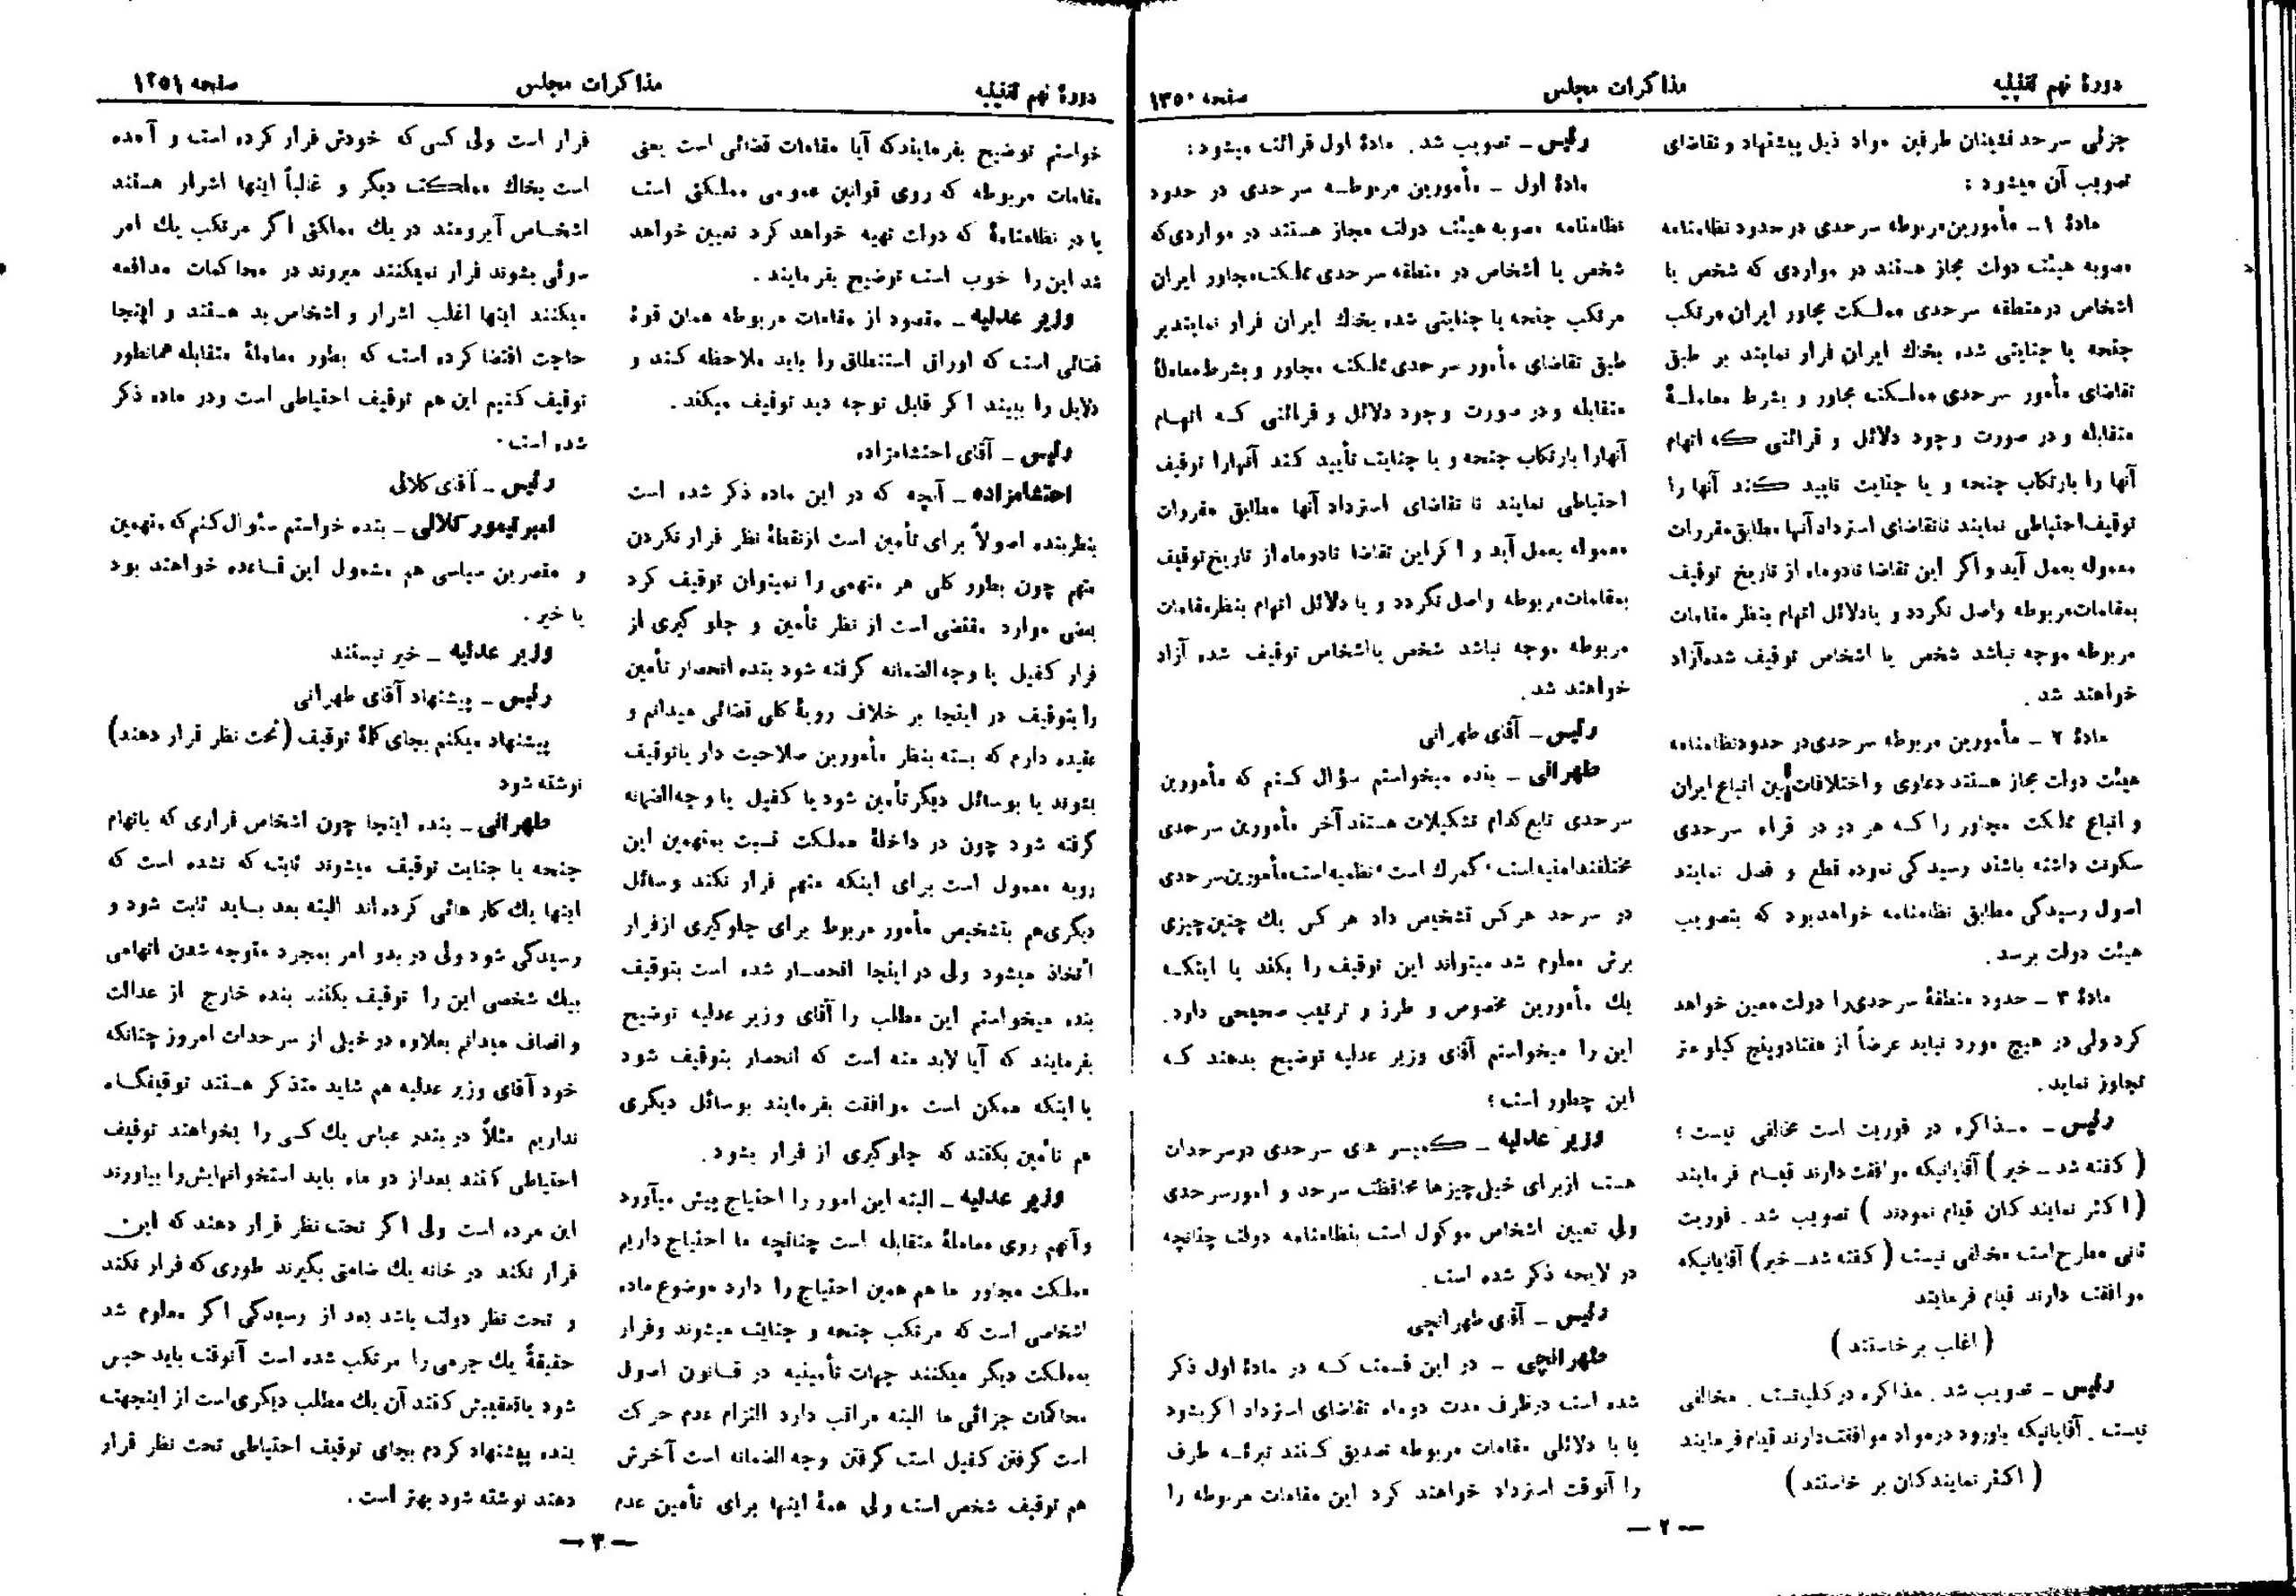 دورهٔ نهم تقنینیه
مذاکرات مجلس
صفحه ۱۳۵۰
جزئی سرحد نشینان طرفین مواد ذیل پیشنهاد و تقاضای
تصویب آن میشود :
مادهٔ ۱ ـ مأمورین مربوطه سرحدی در حدود نظامنامه
مصوبه هیئت دولت مجاز هستند در مواردی که شخص یا
اشخاص در منطقه سرحدی مملکت مجاور ایران مرتکب
جنحه یا جنایتی شده بخاك ایران فرار نمایند بر طبق
تقاضای مأمور سرحدی مملکت مجاور و بشرط معاملهٔ
متقابله و در صورت وجود دلائل و قرائنی که اتهام
آنها را بارتکاب جنحه و یا جنایت تایید کند آنها را
توقیف احتیاطی نمایند تا تقاضای استرداد آنها مطابق مقررات
معموله بعمل آید و اگر این تقاضا تا دو ماه از تاریخ توقیف
بمقامات مربوطه واصل نگردد و یا دلائل اتهام بنظر مقامات
مربوطه موجه نباشد شخص یا اشخاص توقیف شده آزاد
خواهند شد .
مادهٔ ۲ ـ مأمورین مربوطه سرحدی در حدود نظامنامه
هیئت دولت مجاز هستند دعاوی و اختلافات بین اتباع ایران
و اتباع مملکت مجاور را که هر دو در قراء سرحدی
سکونت داشته باشند رسیدگی نموده قطع و فصل نمایند
اصول رسیدگی مطابق نظامنامه خواهد بود که بتصویب
هیئت دولت برسد .
مادهٔ ۳ ـ حدود منطقهٔ سرحدی را دولت معین خواهد
کرد ولی در هیچ مورد نباید عرضاً از هفتاد و پنج کیلو متر
تجاوز نماید.
رئیس ـ مذاکره در فوریت است مخالفی نیست ؛
( گفته شد ـ خیر ) آقایانیکه موافقت دارند قیام فرمایند
( اکثر نمایندگان قیام نمودند ) تصویب شد . فوریت
ثانی مطرح است مخالفی نیست ( گفته شد ـ خیر ) آقایانیکه
موافقت دارند قیام فرمایند
( اغلب برخاستند )
رئیس ـ تصویب شد . مذاکره در کلیاتست . مخالفی
نیست . آقایانیکه باورود در مواد موافقت دارند قیام فرمایند
( اکثر نمایندگان بر خاستند )
رئیس ـ تصویب شد . مادهٔ اول قرائت میشود :
مادهٔ اول ـ مأمورین مربوطه سرحدی در حدود
نظامنامه مصوبه هیئت دولت مجاز هستند در مواردی که
شخص یا اشخاص در منطقه سرحدی مملکت مجاور ایران
مرتکب جنحه یا جنایتی شده بخاك ایران فرار نمایند بر
طبق تقاضای مأمور سرحدی مملکت مجاور و بشرط معاملهٔ
متقابله و در صورت وجود دلائل و قرائنی که اتهام
آنها را بارتکاب جنحه و یا جنایت تأیید کند آنها را توقیف
احتیاطی نمایند تا تقاضای استرداد آنها مطابق مقررات
معموله بعمل آید و اگر این تقاضا تا دو ماه از تاریخ توقیف
بمقامات مربوطه واصل نگردد و یا دلائل اتهام بنظر مقامات
مربوطه موجه نباشد شخص یا اشخاص توقیف شده آزاد
خواهند شد.
رئیس ـ آقای طهرانی
طهرانی ـ بنده میخواستم سؤال کنم که مأمورین
سرحدی تابع کدام تشکیلات هستند آخر مأمورین سرحدی
مختلفند امنیه است ، گمرك است ، نظمیه است مأمورین سرحدی
در سرحد هر کس تشخیص داد هر کس یك چنین چیزی
برش معلوم شد میتواند این توقیف را بکند یا اینکه
یك مأمورین مخصوص و طرز و ترتیب صحیحی دارد.
این را میخواستم آقای وزیر عدلیه توضیح بدهند که
این چطور است ؛
وزیر عدلیه ـ کمیسر های سرحدی در سرحدات
هست از برای خیلی چیزها محافظت سرحد و امور سرحدی
ولی تعیین اشخاص موکول است بنظامنامه دولت چنانچه
در لایحه ذکر شده است.
رئیس ـ آقای طهرانچی
طهرانچی ـ در این قسمت که در مادهٔ اول ذکر
شده است در ظرف مدت دو ماه تقاضای استرداد اگر بشود
یا با دلائلی مقامات مربوطه تصدیق کنند تبرئه طرف
را آنوقت استرداد خواهند کرد این مقامات مربوطه را
— ۲ —
دورهٔ نهم تقنینیه
مذاکرات مجلس
صفحه ۱۲۵۱
خواستم توضیح بفرمایند که آیا مقامات قضائی است یعنی
مقامات مربوطه که روی قوانین عمومی مملکتی است
یا در نظامنامهٔ که دولت تهیه خواهد کرد تعیین خواهد
شد این را خوب است توضیح بفرمایند .
وزیر عدلیه ـ مقصود از مقامات مربوطه همان قوهٔ
قضائی است که اوراق استنطاق را باید ملاحظه کند و
دلایل را ببیند اگر قابل توجه دید توقیف میکند .
رئیس ـ آقای احتشامزاده
احتشامزاده ـ آنچه که در این ماده ذکر شده است
بنظر بنده اصولاً برای تأمین است از نقطهٔ نظر فرار نکردن
متهم چون بطور کلی هر متهمی را نمیتوان توقیف کرد
بعضی موارد مقتضی است از نظر تأمین و جلو گیری از
فرار کفیل یا وجه الضمانه گرفته شود بنده انحصار تأمین
را بتوقیف در اینجا بر خلاف رویهٔ کلی قضائی میدانم و
عقیده دارم که بسته بنظر مأمورین صلاحیت دار یا توقیف
بشوند یا بوسائل دیگر تأمین شود یا کفیل یا وجه الضمانه
گرفته شود چون در داخلهٔ مملکت نسبت بمتهمین این
رویه معمول است برای اینکه متهم فرار نکند وسائل
دیگری هم بتشخیص مأمور مربوط برای جلوگیری از فرار
اتخاذ میشود ولی در اینجا انحصار شده است بتوقیف
بنده میخواستم این مطلب را آقای وزیر عدلیه توضیح
بفرمایند که آیا لابد منه است که انحصار بتوقیف شود
یا اینکه ممکن است موافقت بفرمایند بوسائل دیگری
هم تأمین بکنند که جلوگیری از فرار بشود.
وزیر عدلیه ـ البته این امور را احتیاج پیش میآورد
و آنهم روی معاملهٔ متقابله است چنانچه ما احتیاج داریم
مملکت مجاور ما هم همین احتیاج را دارد موضوع ماده
اشخاصی است که مرتکب جنحه و جنایت میشوند و فرار
بمملکت دیگر میکنند جهات تأمینیه در قانون اصول
محاکمات جزائی ما البته مراتب دارد التزام عدم حرکت
است گرفتن کفیل است گرفتن وجه الضمانه است آخرش
هم توقیف شخص است ولی همهٔ اینها برای تأمین عدم
فرار است ولی کسی که خودش فرار کرده است و آمده
است بخاك مملکت دیگر و غالباً اینها اشرار هستند
اشخاص آبرومند در یك مملکتی اگر مرتکب یك امر
سوئی بشوند فرار نمیکنند میروند در محاکمات مدافعه
میکنند اینها اغلب اشرار و اشخاص بد هستند و اینجا
حاجت اقتضا کرده است که بطور معاملهٔ متقابله همانطور
توقیف کنیم این هم توقیف احتیاطی است و در ماده ذکر
شده است .
رئیس ـ آقای کلالی
امیر تیمور کلالی ـ بنده خواستم سئوال کنم که متهمین
و مقصرین سیاسی هم مشمول این قاعده خواهند بود
یا خیر .
وزیر عدلیه ـ خیر نیستند
رئیس ـ پیشنهاد آقای طهرانی
پیشنهاد میکنم بجای کلمهٔ توقیف (تحت نظر قرار دهند)
نوشته شود
طهرانی ـ بنده اینجا چون اشخاص فراری که باتهام
جنحه یا جنایت توقیف میشوند ثابت که نشده است که
اینها یك کار هائی کرده اند البته بعد بباید ثابت شود و
رسیدگی شود ولی در بدو امر بمجرد متوجه شدن اتهامی
بیك شخصی این را توقیف بکنند بنده خارج از عدالت
و انصاف میدانم بعلاوه در خیلی از سرحدات امروز چنانکه
خود آقای وزیر عدلیه هم شاید متذکر هستند توقیفگاه
نداریم مثلاً در بندر عباس یك کسی را بخواهند توقیف
احتیاطی کنند بعد از دو ماه باید استخوانهایش را بیاورند
این مرده است ولی اگر تحت نظر قرار دهند که این
فرار نکند در خانه یك ضامنی بگیرند طوری که فرار نکند
و تحت نظر دولت باشد بعد از رسیدگی اگر معلوم شد
حقیقهً یك جرمی را مرتکب شده است آنوقت باید حبس
شود یا تعقیبش کنند آن یك مطلب دیگری است از اینجهت
بنده پیشنهاد کردم بجای توقیف احتیاطی تحت نظر قرار
دهند نوشته شود بهتر است .
— ۳ —